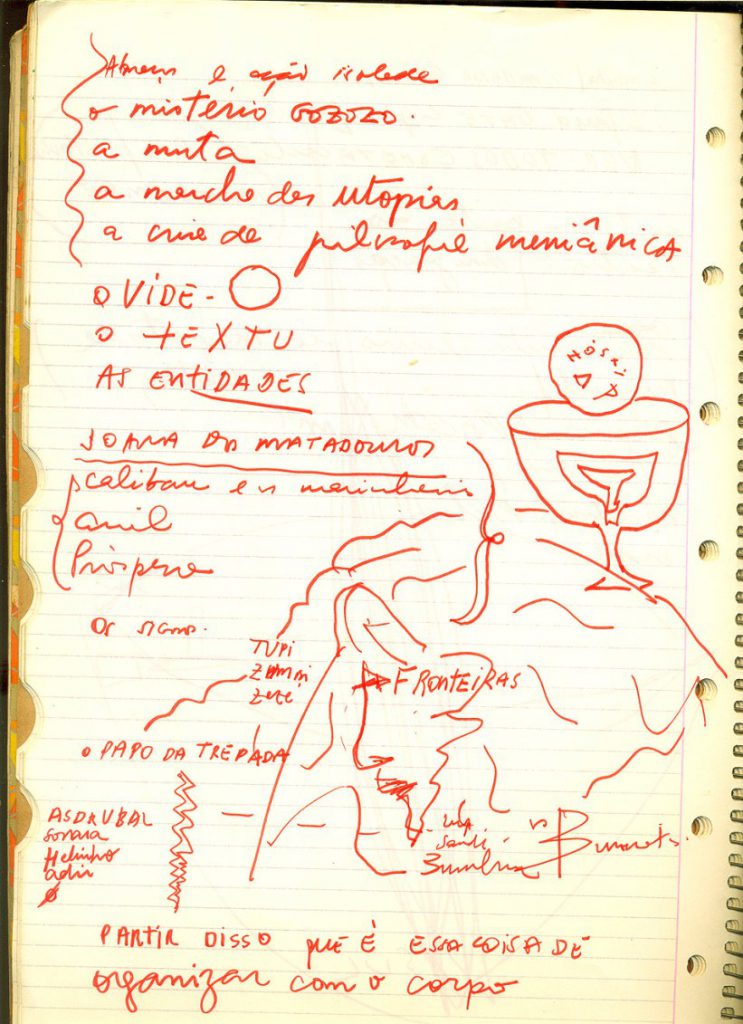 e ação isolada
o mistério GOZOZO.
a muta
a marcha das utopias
a crise da filosofia meniânica
O VIDE-O
O TEXTU
AS ENTIDADES
JOANA DOS MATADOUROS
caliban e os marinheiros
anil
Próspero
Os signos.
HÓSTIA
TUPI
zumbi
zezé
FRONTEIRAS
O PAPO DA TREPADA
ASDRUBAL
sonara
Helinho
adir
PARTIR DISSO que É ESSA COISA DE
organizar com o corpo